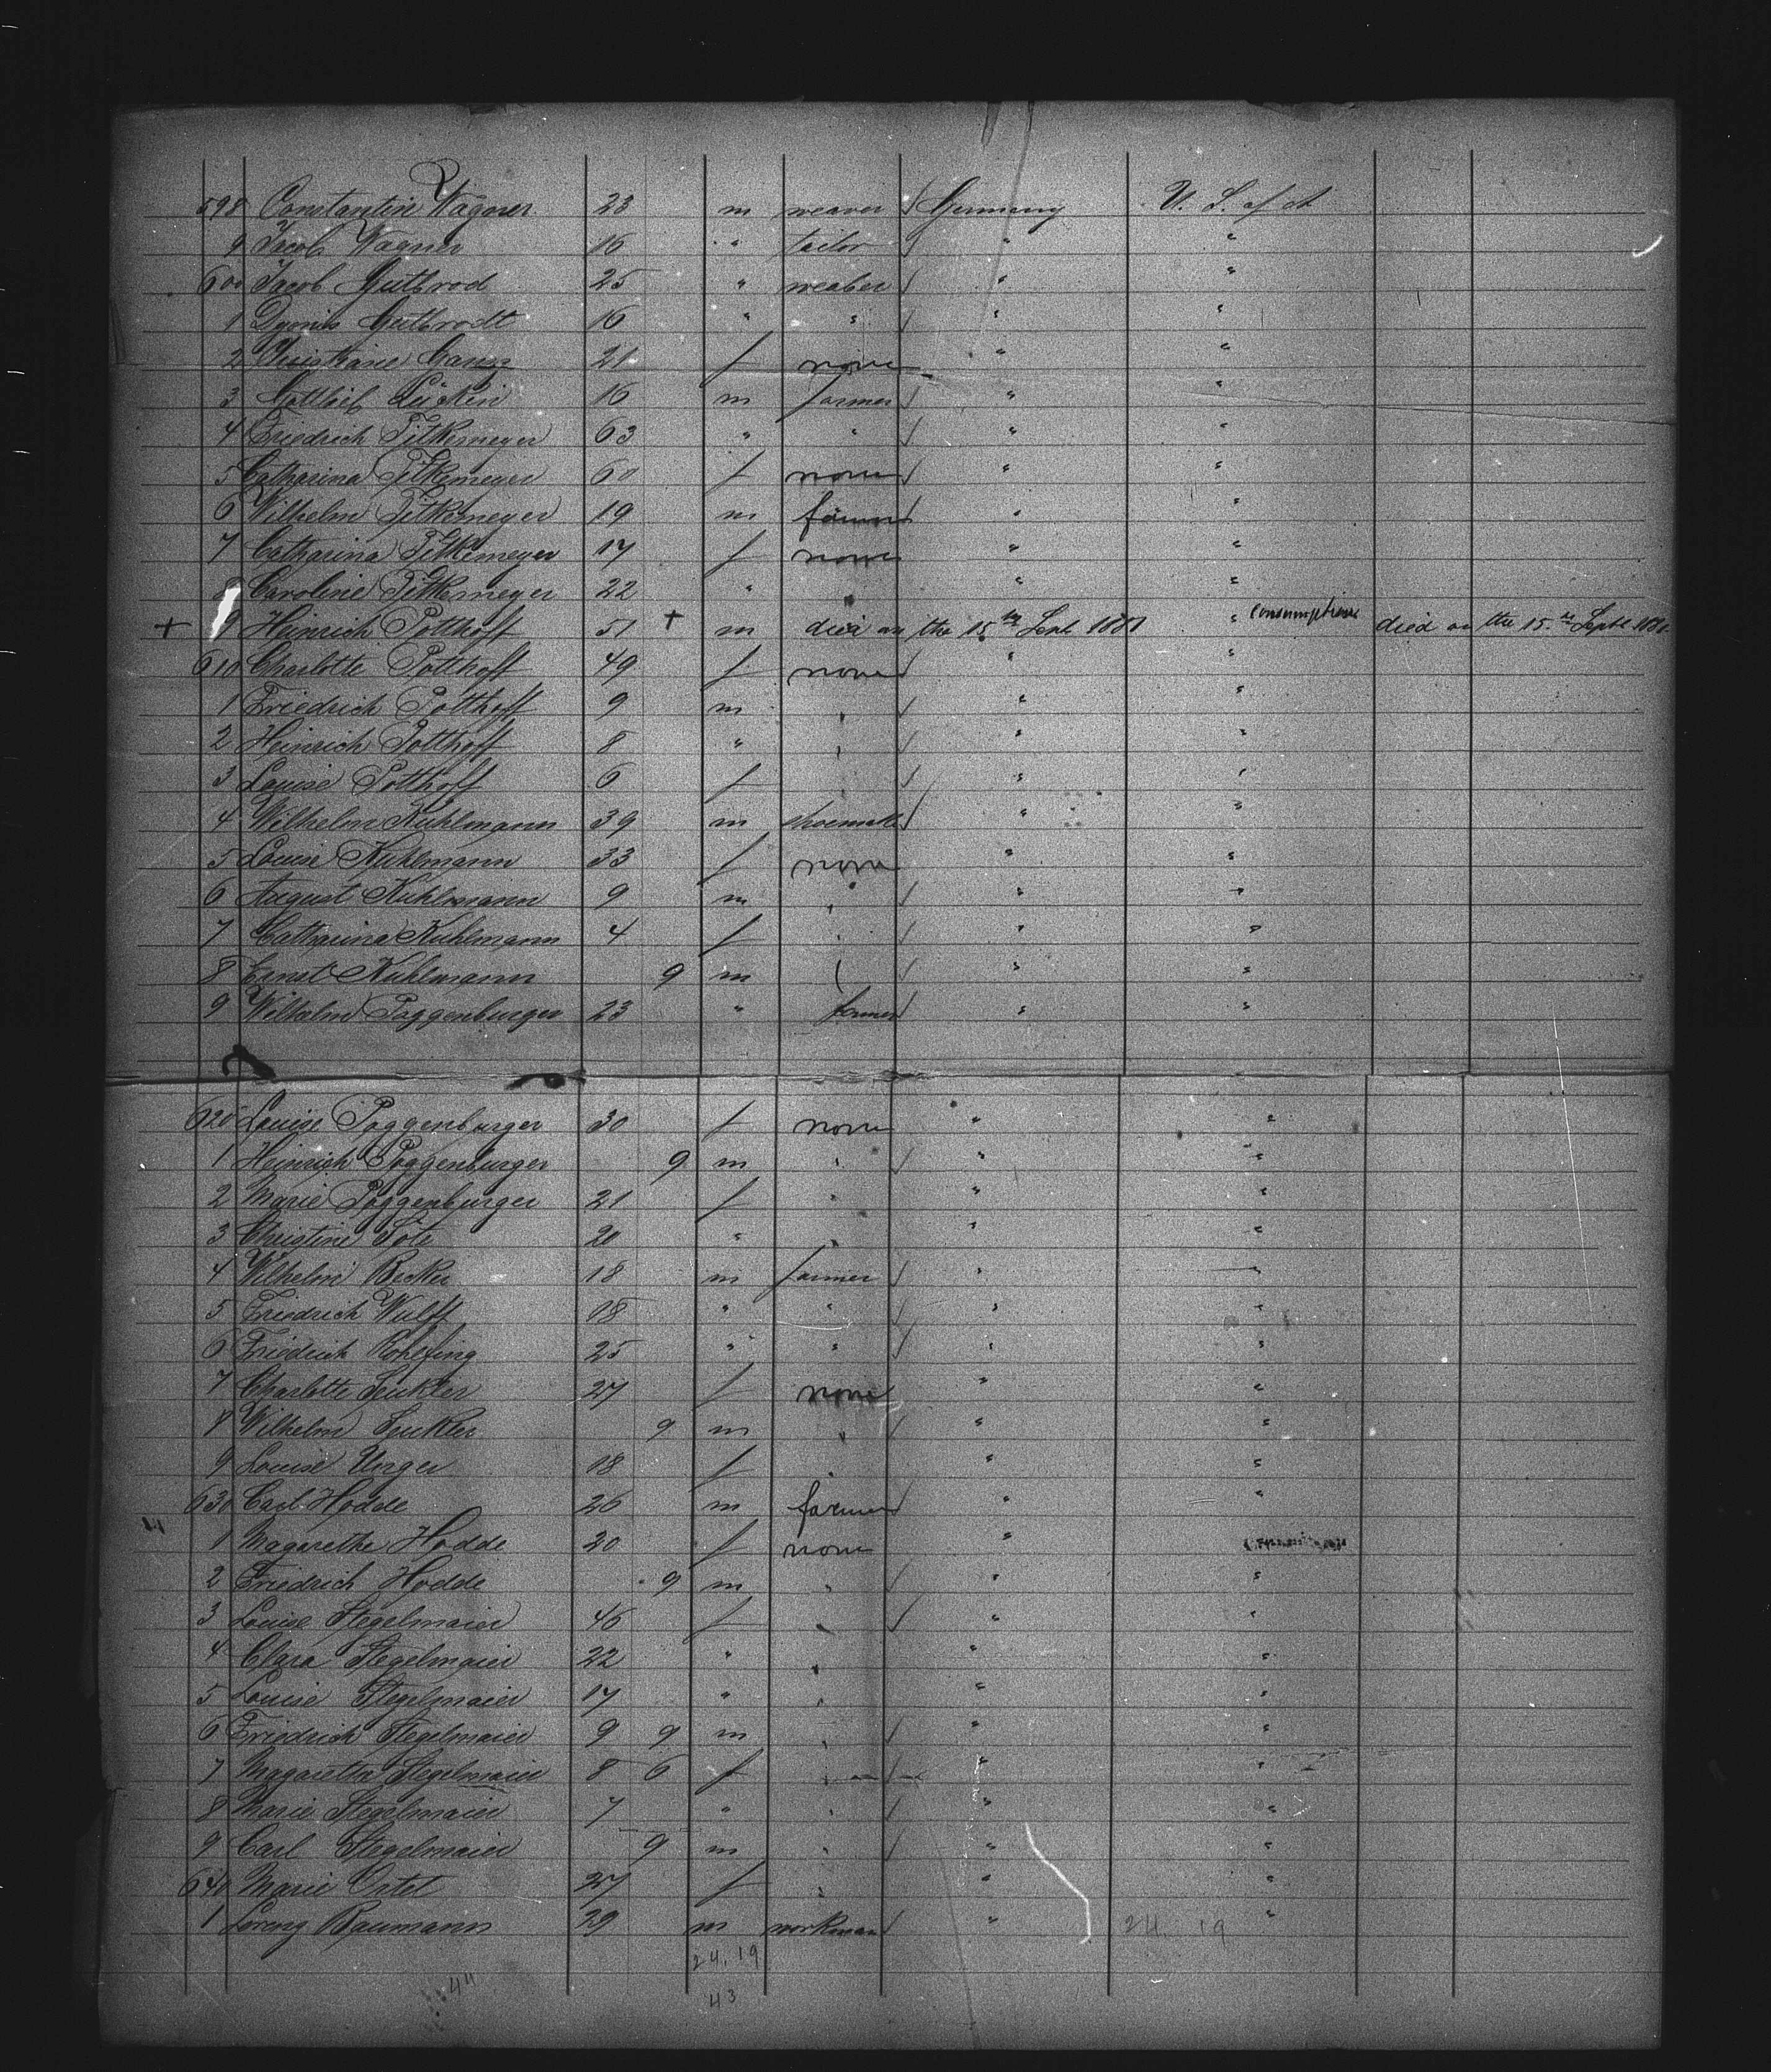 598 Constantin Wagner 23 m weaver Germany U. S. of A
9 Jacob Wagner 16 " tailor " "
600 Jacob Gutbrod 25 " weaber " "
1 Dyonis Gutbrodt 16 " " " "
2 Christiane 21 f none " "
3 Gottlieb 16 m farmer " "
4 Friedrich Titkemeyer 63 " " " "
5 Catharina Titkemeyer 60 f none " "
6 Wilhelm Titkemeyer 19 m farmer " "
7 Catharina Titkemeyer 17 f none " "
8 Caroline Titkemeyer 22 " " " "
+ 9 Heinrich Potthoff 51 + m died on the 15th Sept 1881 " Consumption died on the 15th Sept 1881
610 Charlotte Potthoff 49 f none " "
1 Friedrich Potthoff 9 m " " "
2 Heinrich Potthoff 8 " " " "
3 Louise Potthoff 6 f " "
4 Wilhelm Kuhlmann 39 m shoemak " "
5 Louise Kuhlmann 33 f none " "
6 August Kuhlmann 9 m " " "
7 Catharina Kuhlmann 4 f " " "
8 Ernst Kuhlmann 9 m " "
9 Wilhelm Poggenburger 23 " farmer " "
620 Louise Poggenburger 30 f none " "
1 Heinrich Poggenburger 9 m " " "
2 Marie Poggenburger 21 f " " "
3 Christine 20 " " " "
4 Wilhelm Becker 18 m farmer " "
5 Friedrich Wulff 18 " " " "
6 Friedrich Rohlfing 25 " " " "
7 Charlotte 27 f none " "
8 Wilhelm 9 m " " "
9 Louise Unger 18 f " " "
630 Carl Hodde 26 m farmer " "
1 Magarethe Hodde 20 f none "
2 Friedrich Hodde 9 m " " "
3 Louise Stegelmaier 46 f " " "
4 Clara Stegelmaier 22 " " " "
5 Louise Stegelmaier 17 " " " "
6 Friedrich Stegelmaier 9 9 m " " "
7 Magaretha Stegelmaier 8 6 f " " "
8 Marie Stegelmaier 7 " " " "
9 Carl Stegelmaier 9 m " " "
640 Marie Ortel 27 f " " "
1 Lorenz Baumann 29 m workman " "
24. 19
24. 19
44
43